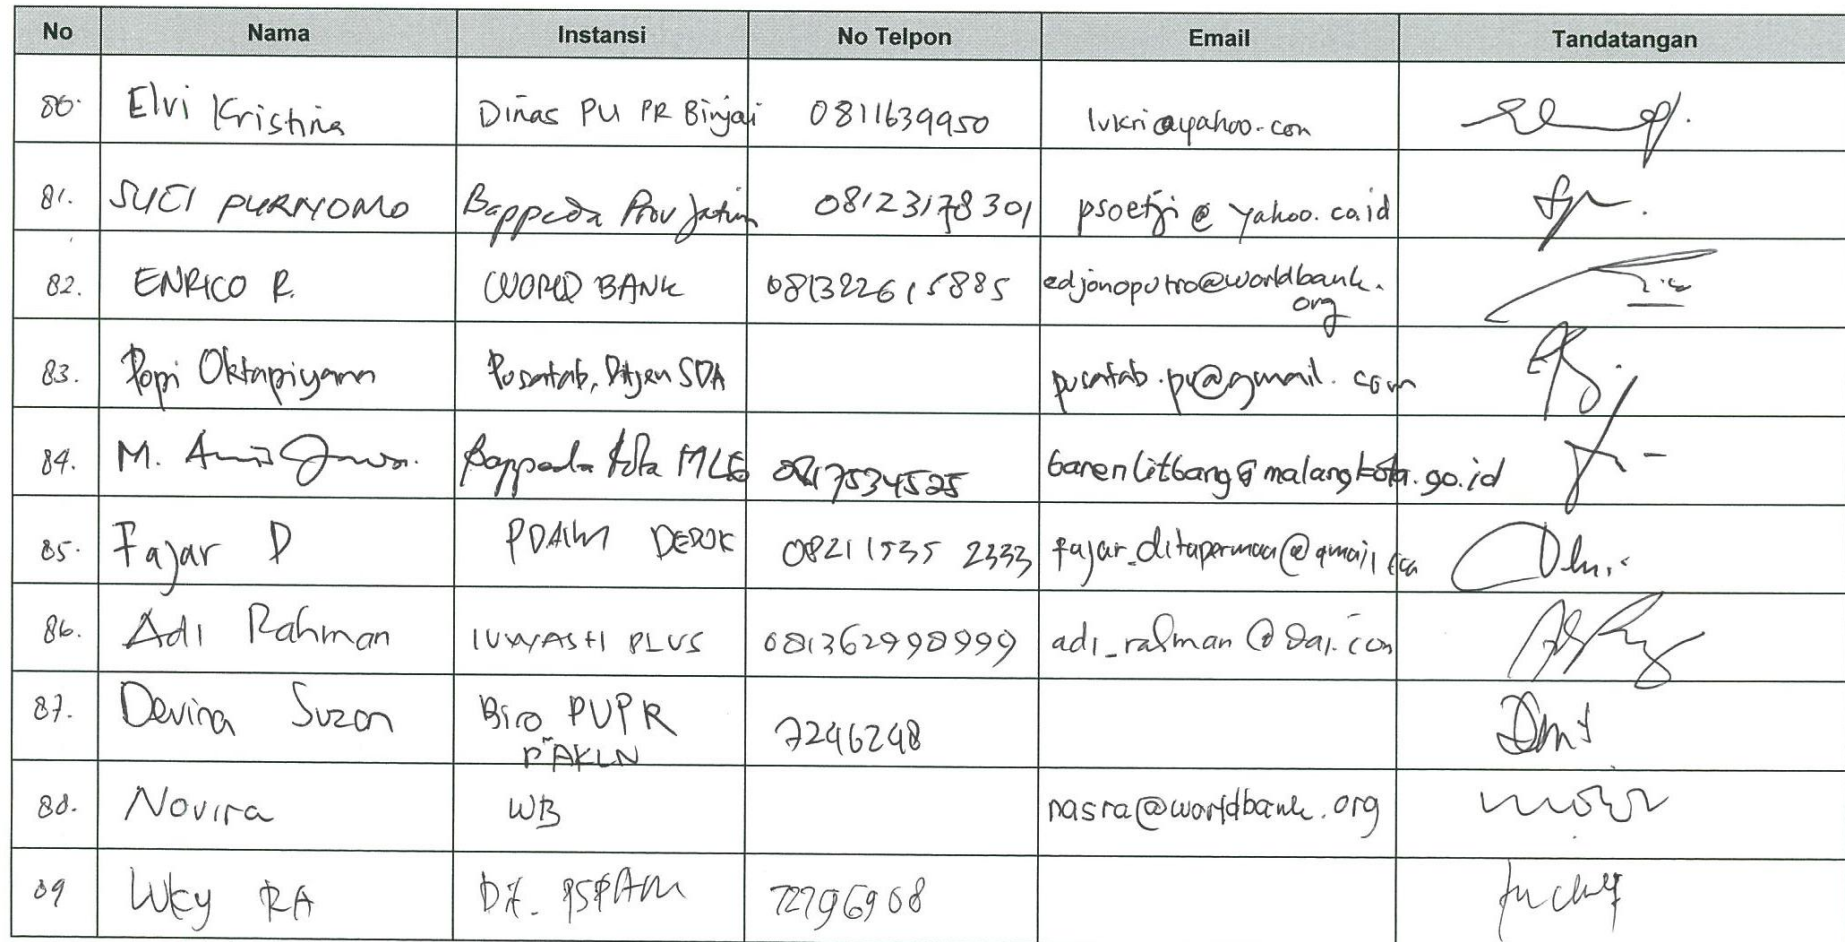 No Nama Instansi No Telpon Email Tandatangan
80. Elvi Kristina Dinas PU PR Binjai 0811639950 lvkri@yahoo.com
81. SUCI PURNOMO Bappeda Prov Jatim 08123178301 psoetji@yahoo.co.id
82. ENRICO R. WORLD BANK 081322615885 edjonoputro@worldbank.
org
83. Popi Oktapiyann Pusatab, Ditjen SDA pusatab.pu@gmail.com
84. M. Bappeda Kota MLG 0817534525 barenlitbang@malangkota.go.id
85. Fajar D PDAM DEPOK 08211535 2333 fajar_ditapermana@gmail.com
86. Adi Rahman IUWASH PLUS 081362990999 adi_rahman@dai.com
87. Devina Suzan Biro PUPR 7246248
PAKLN
88. Novira WB nasra@worldbank.org
89 Wky RA Dit. PSPAM 72796908